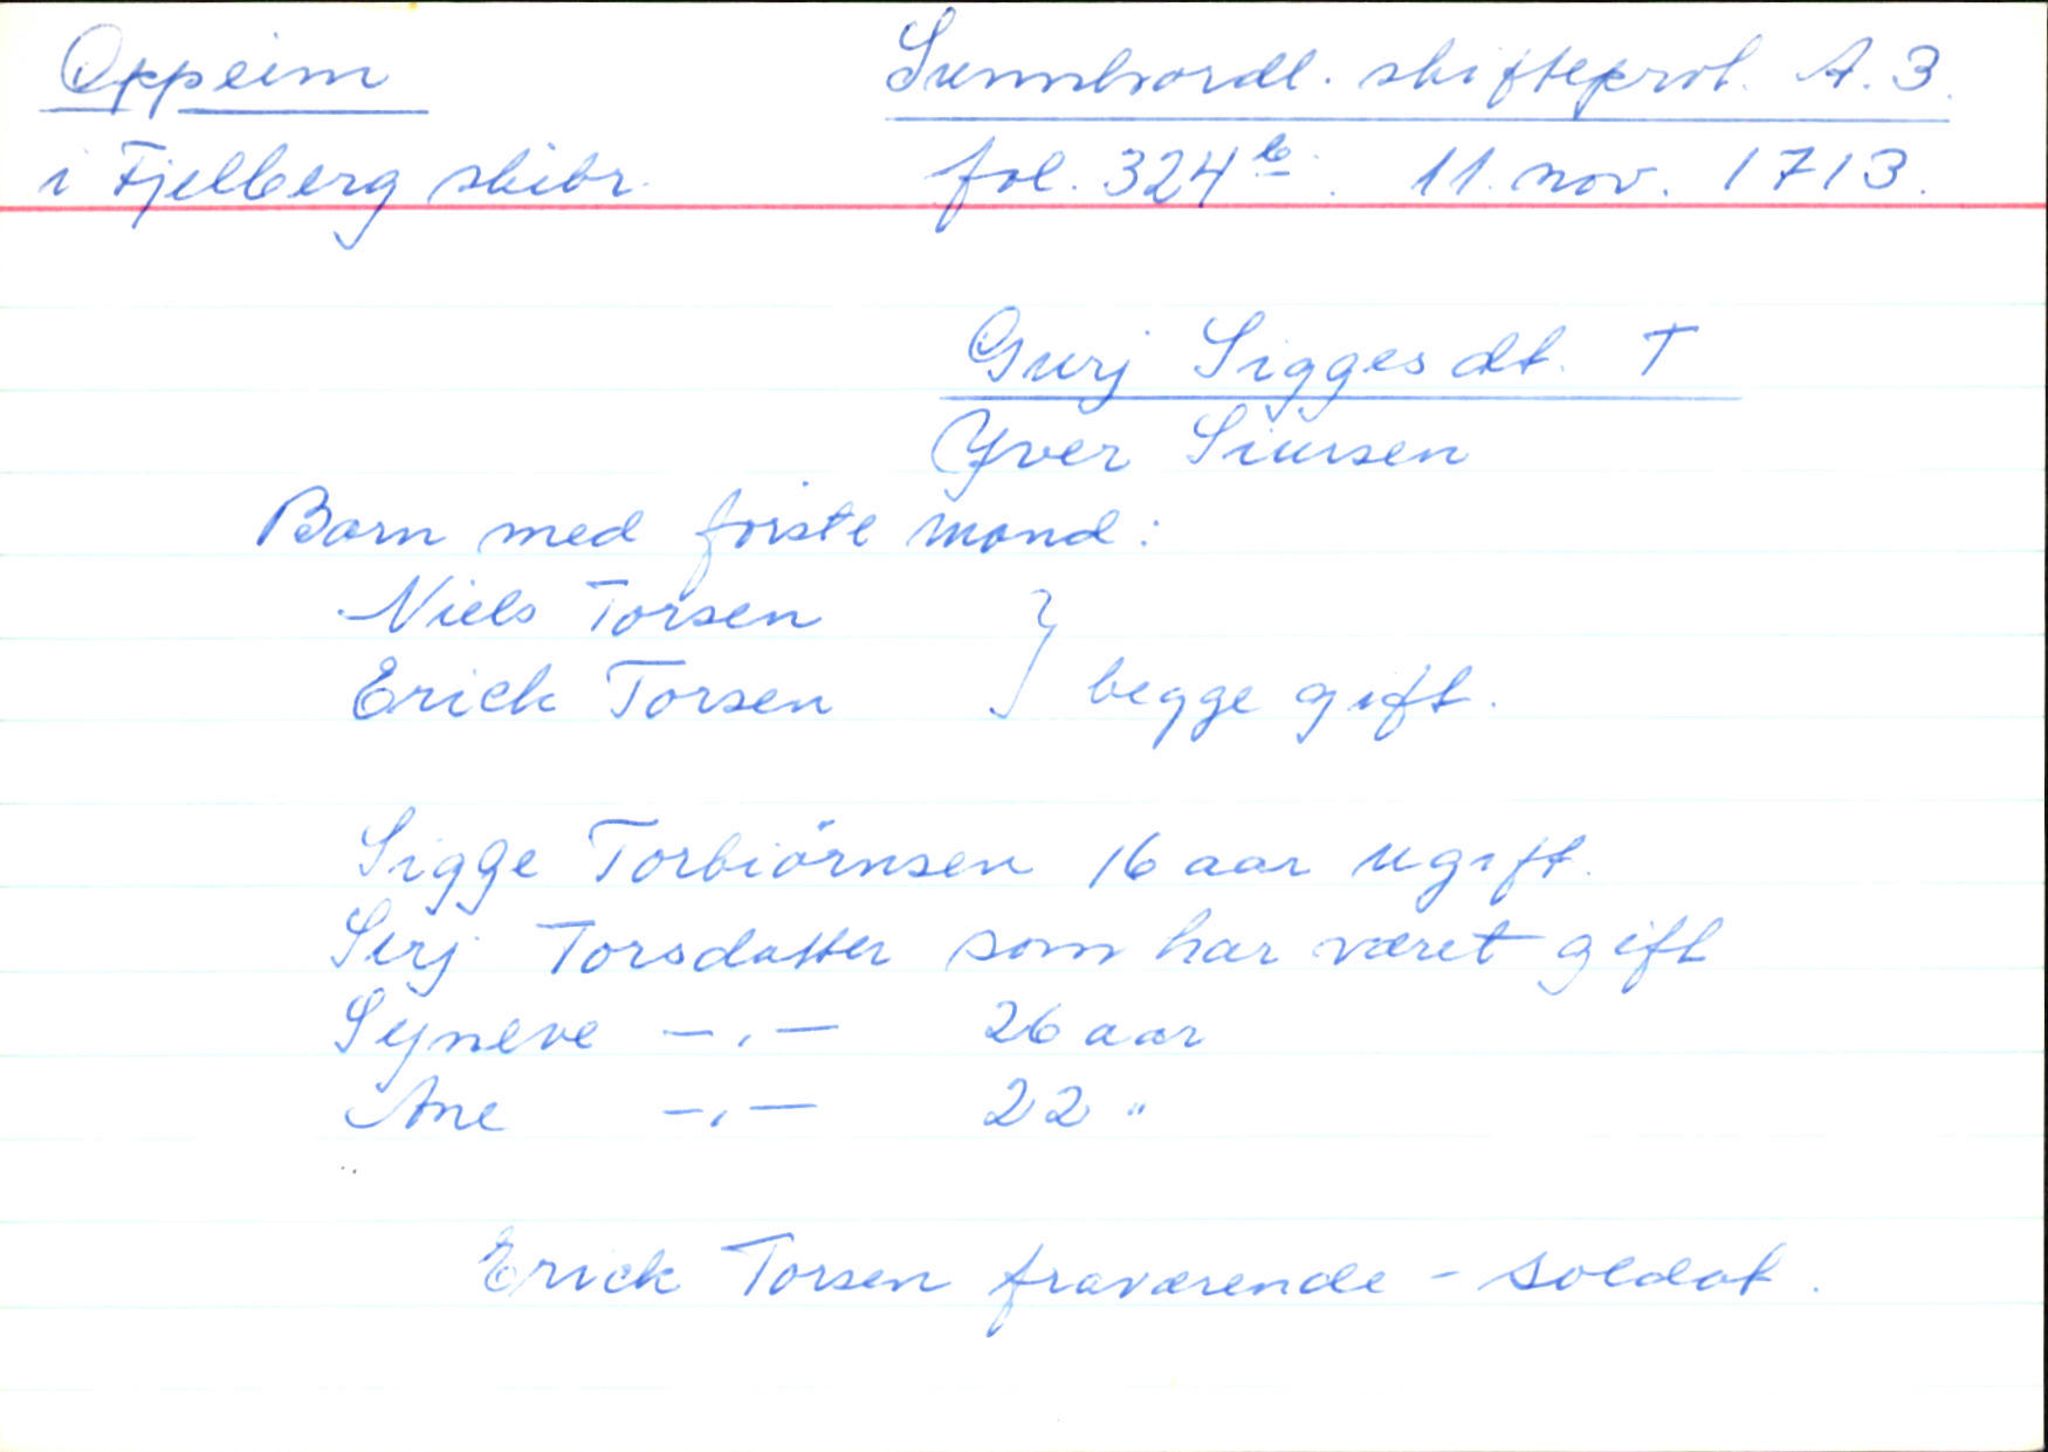 Oppeim
i Fjelberg skibr.
Sunnhordl. skifteprot. A. 3.
fol. 324b. 11. nov. 1713.
Gurj Siggesdt. †
Yver Siursen
Barn med förste mand:
Niels Torsen
Erick Torsen } begge gift.
Sigge Torbiörnsen 16 aar ugift.
Sirj Torsdatter som har været gift
Syneve —,— 26 aar
Ane —,— 22 "
Erick Torsen fraværende - soldat.